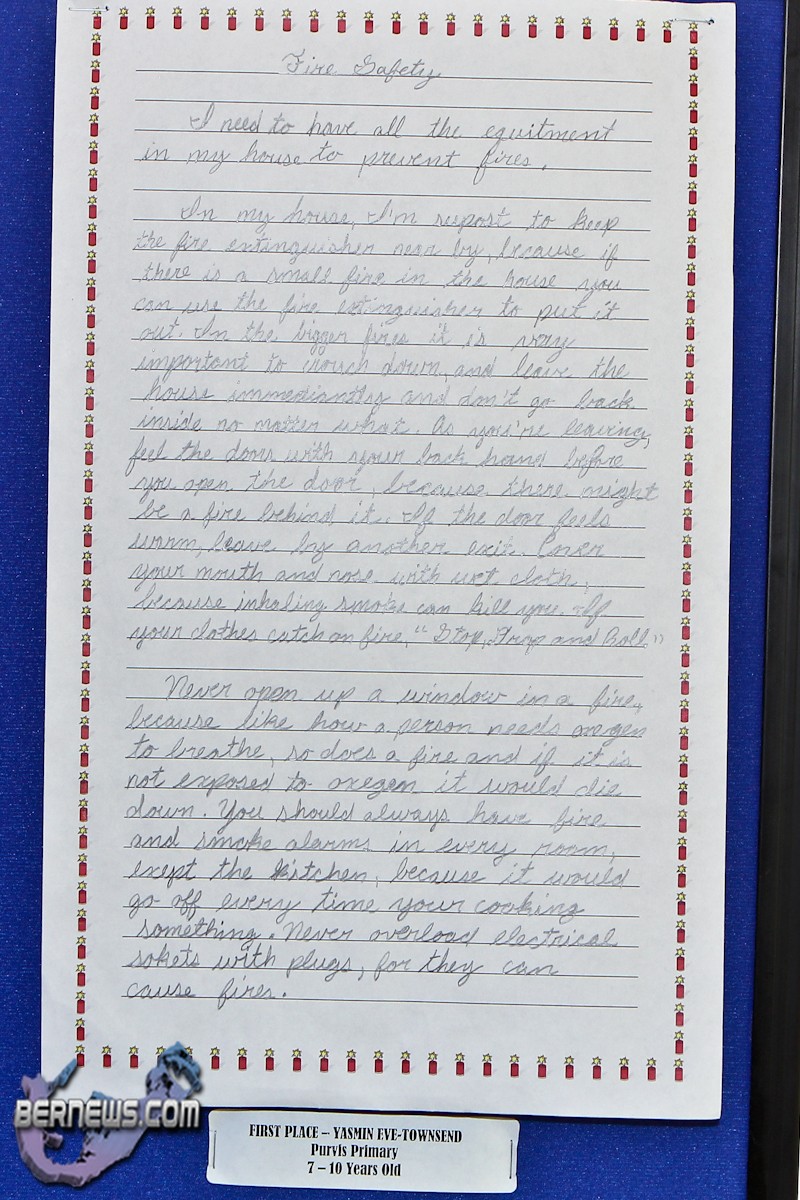 Fire Safety
I need to have all the equitment
in my house to prevent fires.
In my house, I'm supost to keep
the fire extinguisher near by, because if
there is a small fire in the house you
can use the fire extinguisher to put it
out. In the bigger fires it is very
important to crouch down, and leave the
house immediantly and don't go back
inside no matter what. As you're leaving,
feel the doors with your back hand before
you open the door, because there might
be a fire behind it. If the door feels
warm, leave by another exit. Cover
your mouth and nose with wet cloth,
because inhaling smoke can kill you. If
your clothes catch on fire, "Stop, Drop and Roll."
Never open up a window in a fire,
because like how a person needs oxegen
to breathe, so does a fire and if it is
not exposed to oxegen it would die
down. You should always have fire
and smoke alarms in every room,
exept the kitchen, because it would
go off every time your cooking
something. Never overload electrical
sokets with plugs, for they can
cause fires.
BERNEWS.COM
FIRST PLACE – YASMIN EVE-TOWNSEND
Purvis Primary
7 – 10 Years Old